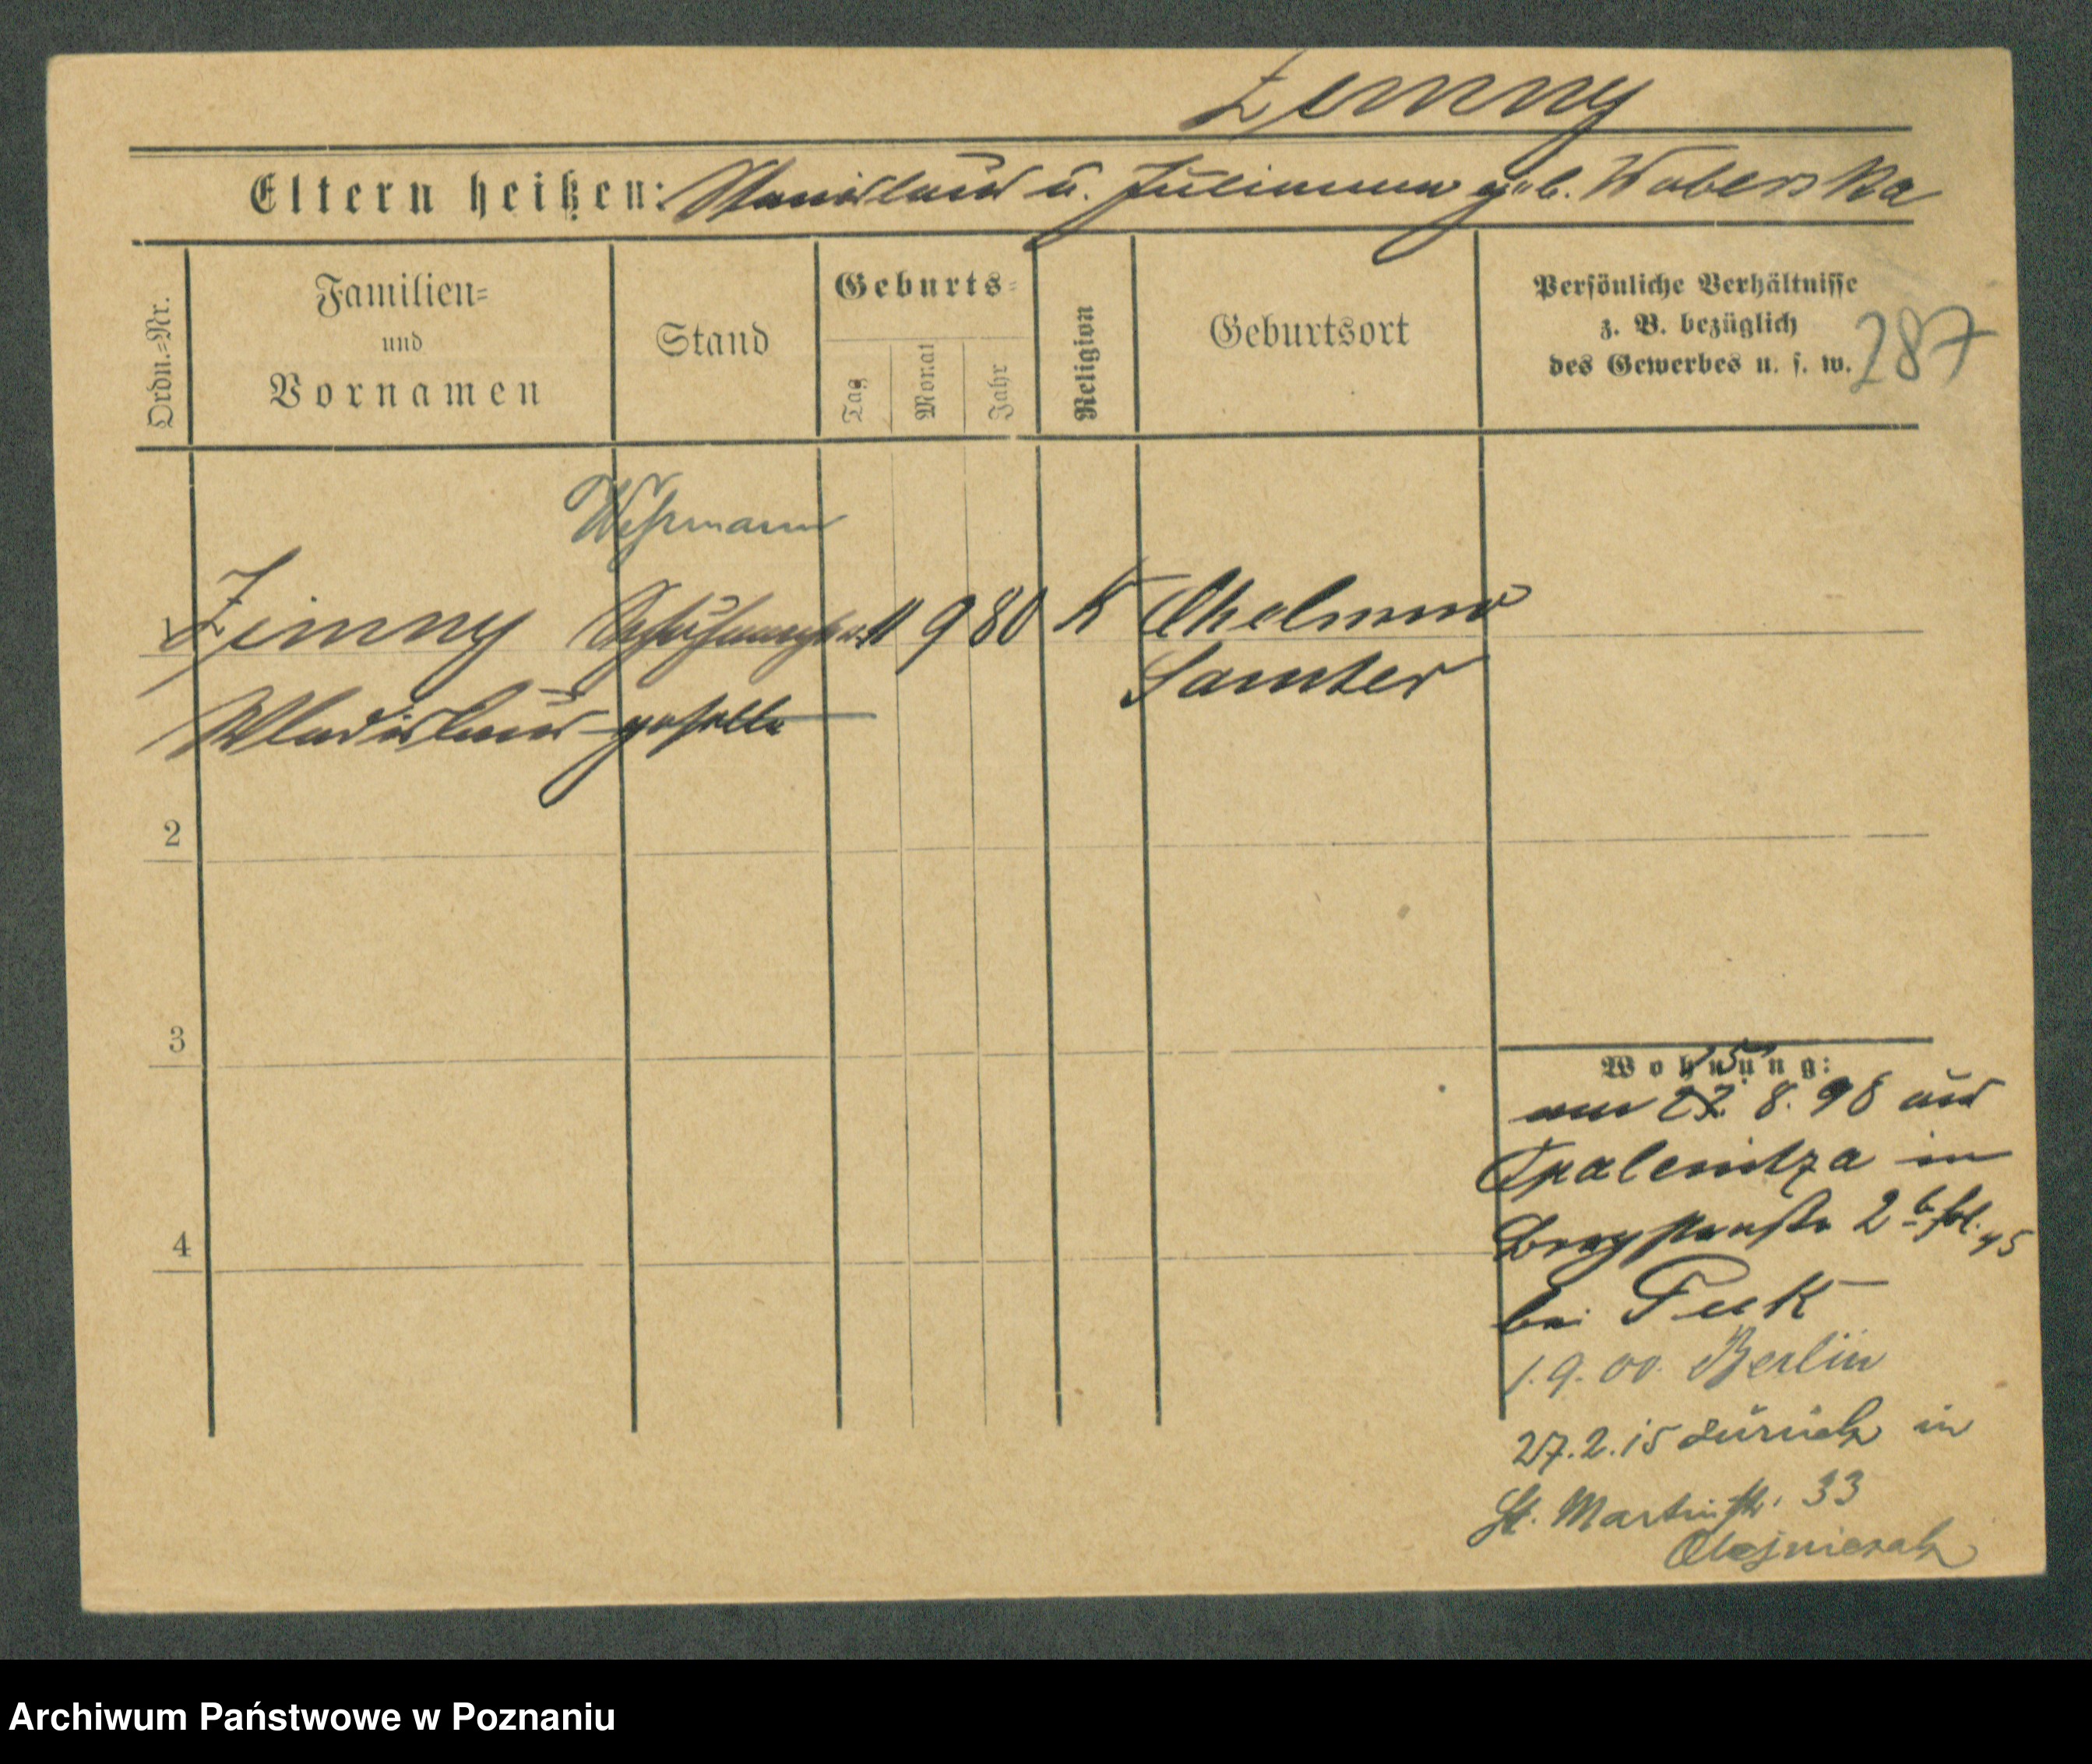 Zimny
Eltern heißen: Stanislaus u. Julianna geb. Waberska
Ordn.=Nr.
Familien=
und
Vornamen
Stand
Geburts=
Tag
Monat
Jahr
Religion
Geburtsort
Persönliche Verhältnisse
z. B. bezüglich
des Gewerbes u. s. w.
287
Wehrmann
1 Zimny Schuhmacher 11 9 80 K Chelmno
Samter
Wladislaus geselle
2
3
4
Wohnung:
15
am 27. 8. 98 aus
Opalenitza in
Bergstraße 2 b fol. 45
bei
1.9.00. Berlin
27.2.15 zurück in
St. Martinstr. 33
Olejniczak
Archiwum Państwowe w Poznaniu